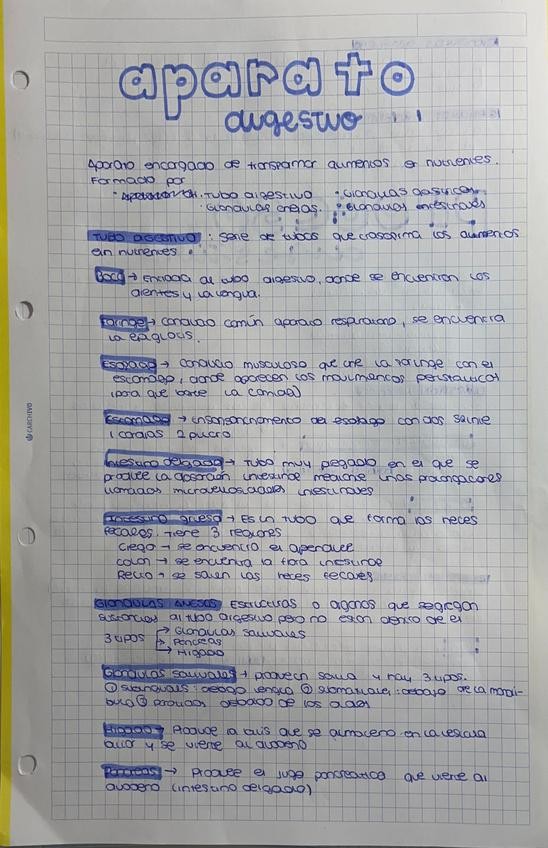 aparato
digestivo
Aparato encargado de transformar alimentos en nutrientes.
Formado por
· Tubo digestivo · Glándulas gástricas
· Glándulas anejas. · Glándulas intestinales
Tubo digestivo: serie de tubos que transforma los alimentos
en nutrientes
Boca → Entrada al tubo digestivo, donde se encuentran los
dientes y la lengua.
Faringe → conducto común aparato respiratorio, se encuentra
la epiglotis.
Esofago → conducto musculoso que une la faringe con el
estomago, donde aparecen los movimientos peristalticos
(para que baje la comida)
Estomago → ensanchamiento del esofago con dos
1 cardias 2 piloro
Intestino delgado → Tubo muy plegado en el que se
produce la absorción intestinal mediante unas prolongaciones
llamadas microvellosidades intestinales
Intestino grueso → Es un tubo que forma las heces
fecales. Tiene 3 regiones
Ciego → se encuentra el apendice
colon → se encuentra la flora intestinal
Recto → se salen las heces fecales
Glándulas anejas Estructuras o organos que segregan
sustancias al tubo digestivo pero no estan dentro de el
3 tipos → Glandulas salivales
→ Pancreas
→ Higado
Glandulas salivales → producen saliva y hay 3 tipos.
① sublinguales: debajo lengua ② submaxilar: debajo de la mandi-
bula ③ parotidas debajo de los oidos
Higado → Produce la bilis que se almacena en la vesicula
biliar y se vierte al duodeno
Pancreas → Produce el jugo pancreatico que vierte al
duodeno (intestino delgado)